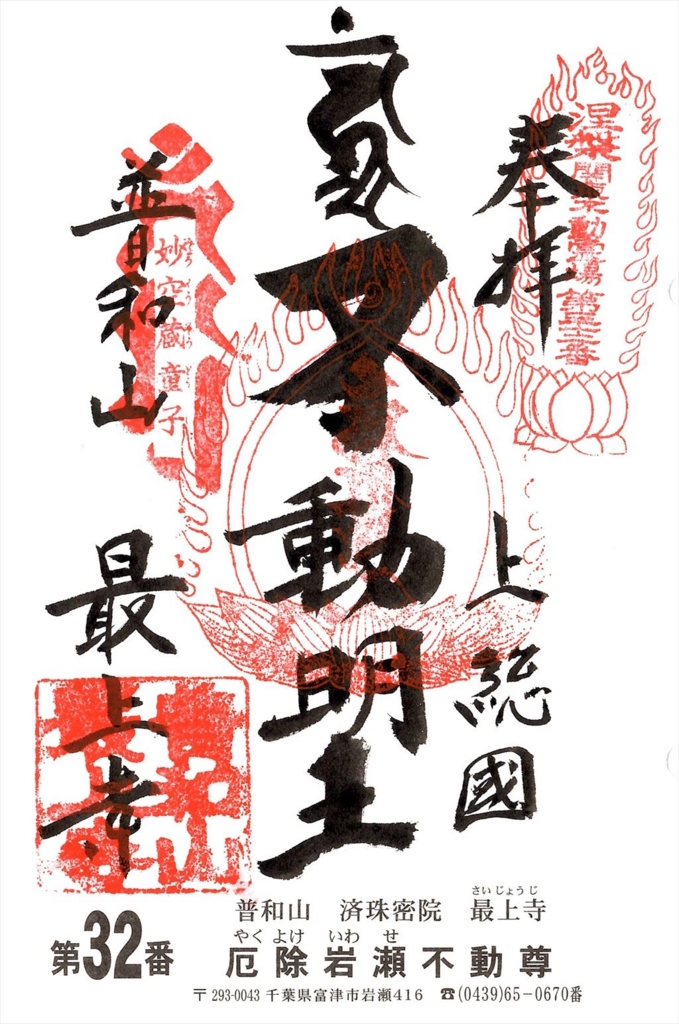 奉拝
上総國
不動明王
普和山
最上寺
妙空蔵童子
第32番
普和山 済珠密院 最上寺
さいじょうじ
やくよけ いわ せ
厄除岩瀬不動尊
〒293-0043 千葉県富津市岩瀬416 ☎(0439)65-0670番